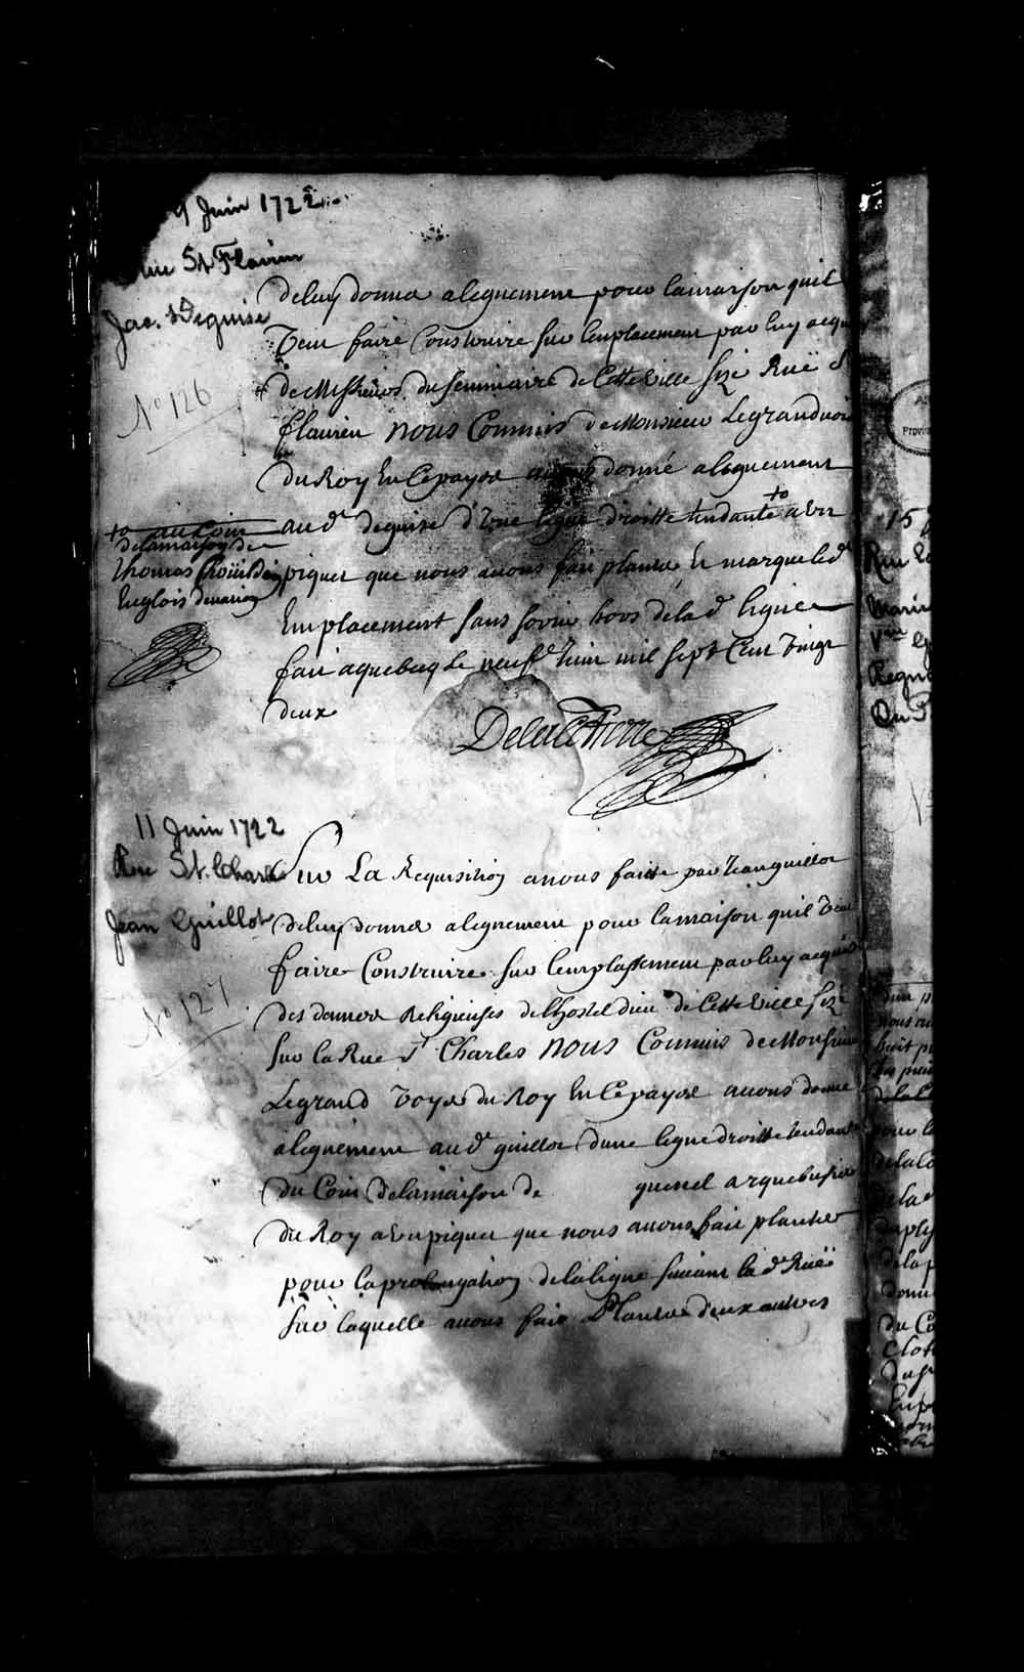 9 Juin 1722
Rue St Flavien
Jac. Deguise
No 126
deluy donner alegnement pour lamaison quil
Veut faire Construire sur lemplacement par luy acquis
de Messieurs du seminaire de Cette Ville size Rüe St
flavien nous Commis de Monsieur Legrand voier
du Roy En Cepayse avons donné alegnement
aud. deguise d'Une ligne droitte tendante to a Un
to au Coin
delamaison de
thomas
Englois denation
piquet que nous avons fait planter Et marque led.
Emplacement sans sortir hors delad. ligne
fait aquebecq le neufe. Juin mil sept Cent Vingt
deux
11 Juin 1722
Rue St. Charles
Jean Guillot
No 127
Sur La Requisition anous faitte par Jean guillot
deluy donner alegnement pour lamaison quil Veut
faire Construire sur lemplassement par luy acquis
des dames Religieuses delhostel dieu de Cette Ville size
sur la Rue St Charles nous Commis de Monsieur
Legrand Voyer du Roy En Cepayse avons donné
alegnement aud. guillot dune ligne droitte tendante
du Coin delamaison de quenel arquebusier
du Roy a Un piquet que nous avons fait planter
pour la prolongation delaligne suivant lad. Rüe
sur laquelle avons fait Planter deux autres